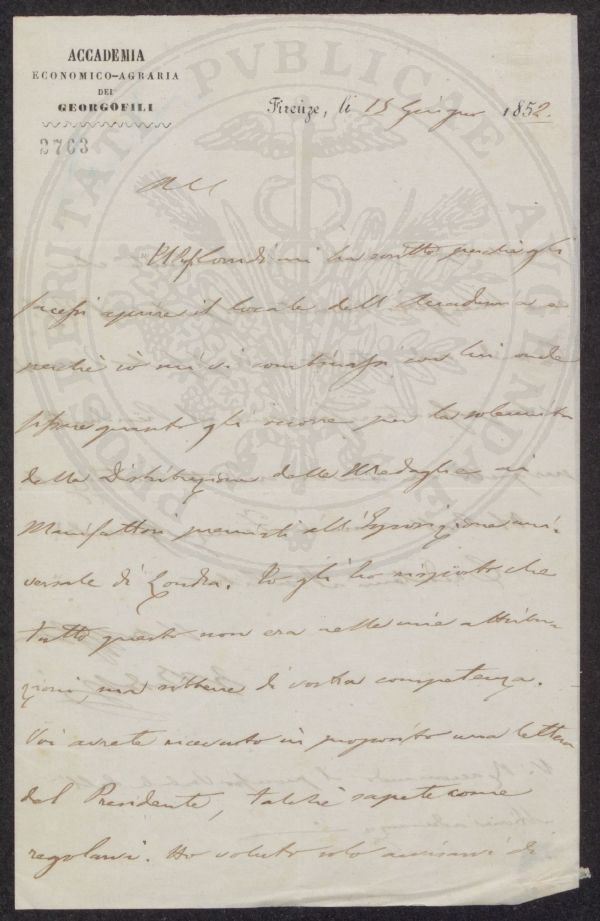 ACCADEMIA
ECONOMICO-AGRARIA
DEI
GEORGOFILI
Firenze, li 15 Giugno 1852.
2703
PROSPERITATI PVBLICAE AVGENDAE
mi ha scritto perchè gli
facessi aprire il locale dell' Accademia e
perchè io mi vi con lui onde
quanto gli occorre per la solennità
della Distribuzione delle Medaglie ai
Manifattori premiati all' Esposizione uni-
versale di Londra. Io gli ho risposto che
tutto questo non era nelle mie attribu-
zioni, ma sibbene di vostra competenza.
Voi avrete ricevuto in proposito una lettera
del Presidente, talchè sapete come
regolarvi. Ho voluto solo avvisarvi di